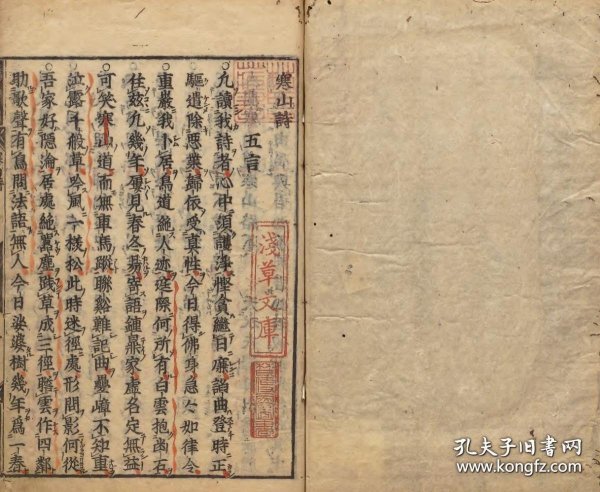 寒山詩
五言
凡讀我詩者心中須護淨慳貪繼日廉諂曲登時正
驅遣除惡業歸依受真性今日得佛身急々如律令
重巖我卜居鳥道絶人迹庭際何所有白雲抱幽石
住玆九幾年屢見春冬易寄語鐘鼎家虛名定無益
可笑寒山道而無車馬蹤聯谿難記曲疊嶂不知重
泣露千般草吟風一樣松此時迷徑處形問影何從
吾家好隱淪居處絶囂塵踐草成三徑瞻雲作四鄰
助歌聲有鳥問法語無人今日婆婆樹幾年爲一春
淺草文庫
孔夫子旧书网
www.kongfz.com